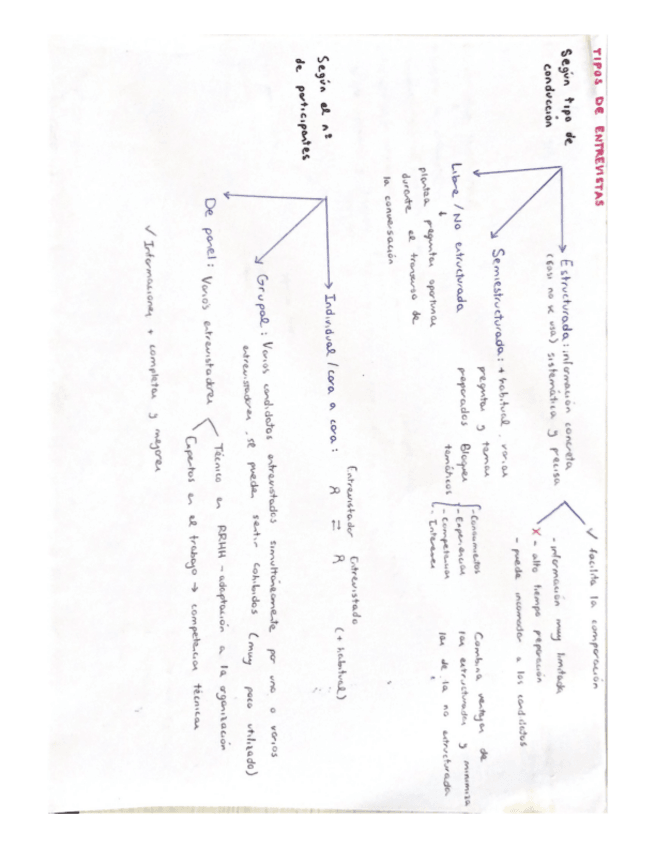 TIPOS DE ENTREVISTAS
Según tipo de
conducción
Estructurada: información concreta
(casi no se usa) sistemática y precisa
✓ facilita la comparación
- información muy limitada
X - alto tiempo preparación
- puede incomodar a los candidatos
Semiestructurada: + habitual, varias
preguntas y temas
preparados Bloques
temáticos
- Conocimientos
- Experiencias
- Competencias
- Intereses
Combina ventajas de
las estructuradas y minimiza
las de la no estructurada
Libre / No estructurada
↓
plantea preguntas oportunas
durante el transcurso de
la conversación
Según el nº
de participantes
Individual / cara a cara:
Entrevistador Entrevistado
R ⇄ R (+ habitual)
Grupal: Varios candidatos entrevistados simultáneamente por uno o varios
entrevistadores, se pueden sentir cohibidos (muy poco utilizado)
De panel: Varios entrevistadores
Técnico en RRHH - adaptación a la organización
Expertos en el trabajo → competencias técnicas
✓ Informaciones + completas y mejores